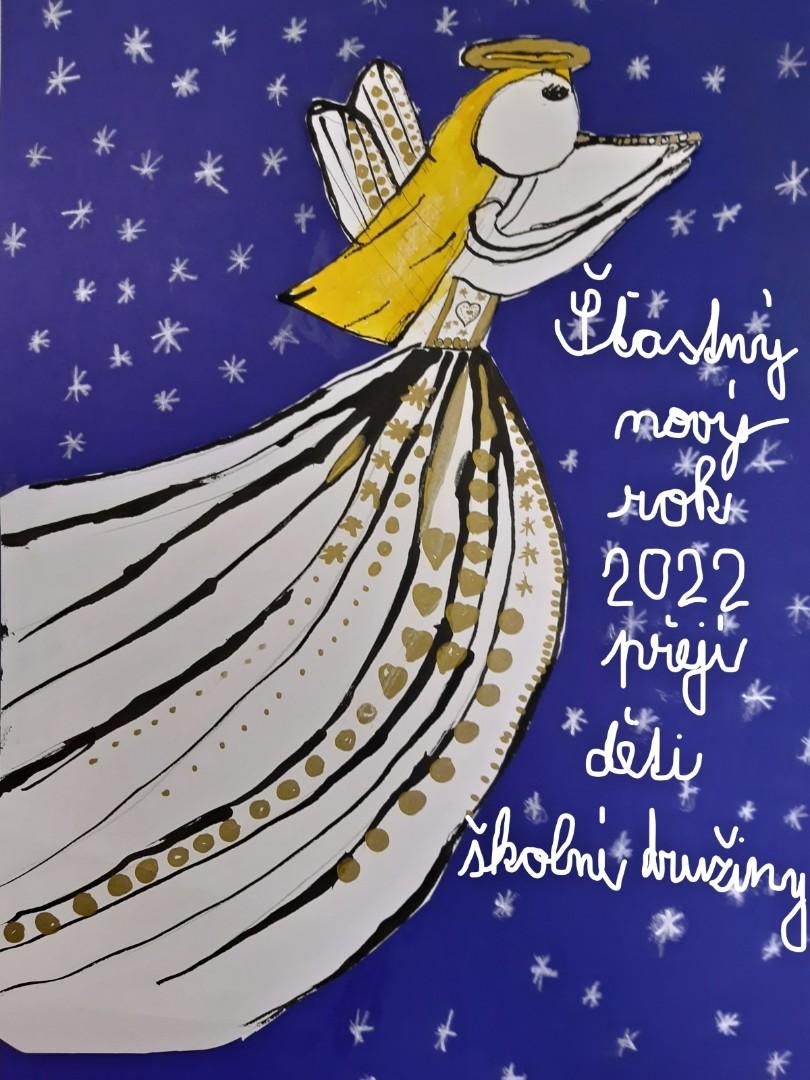 Šťastný
nový
rok
2022
přejí
děti
školní družiny